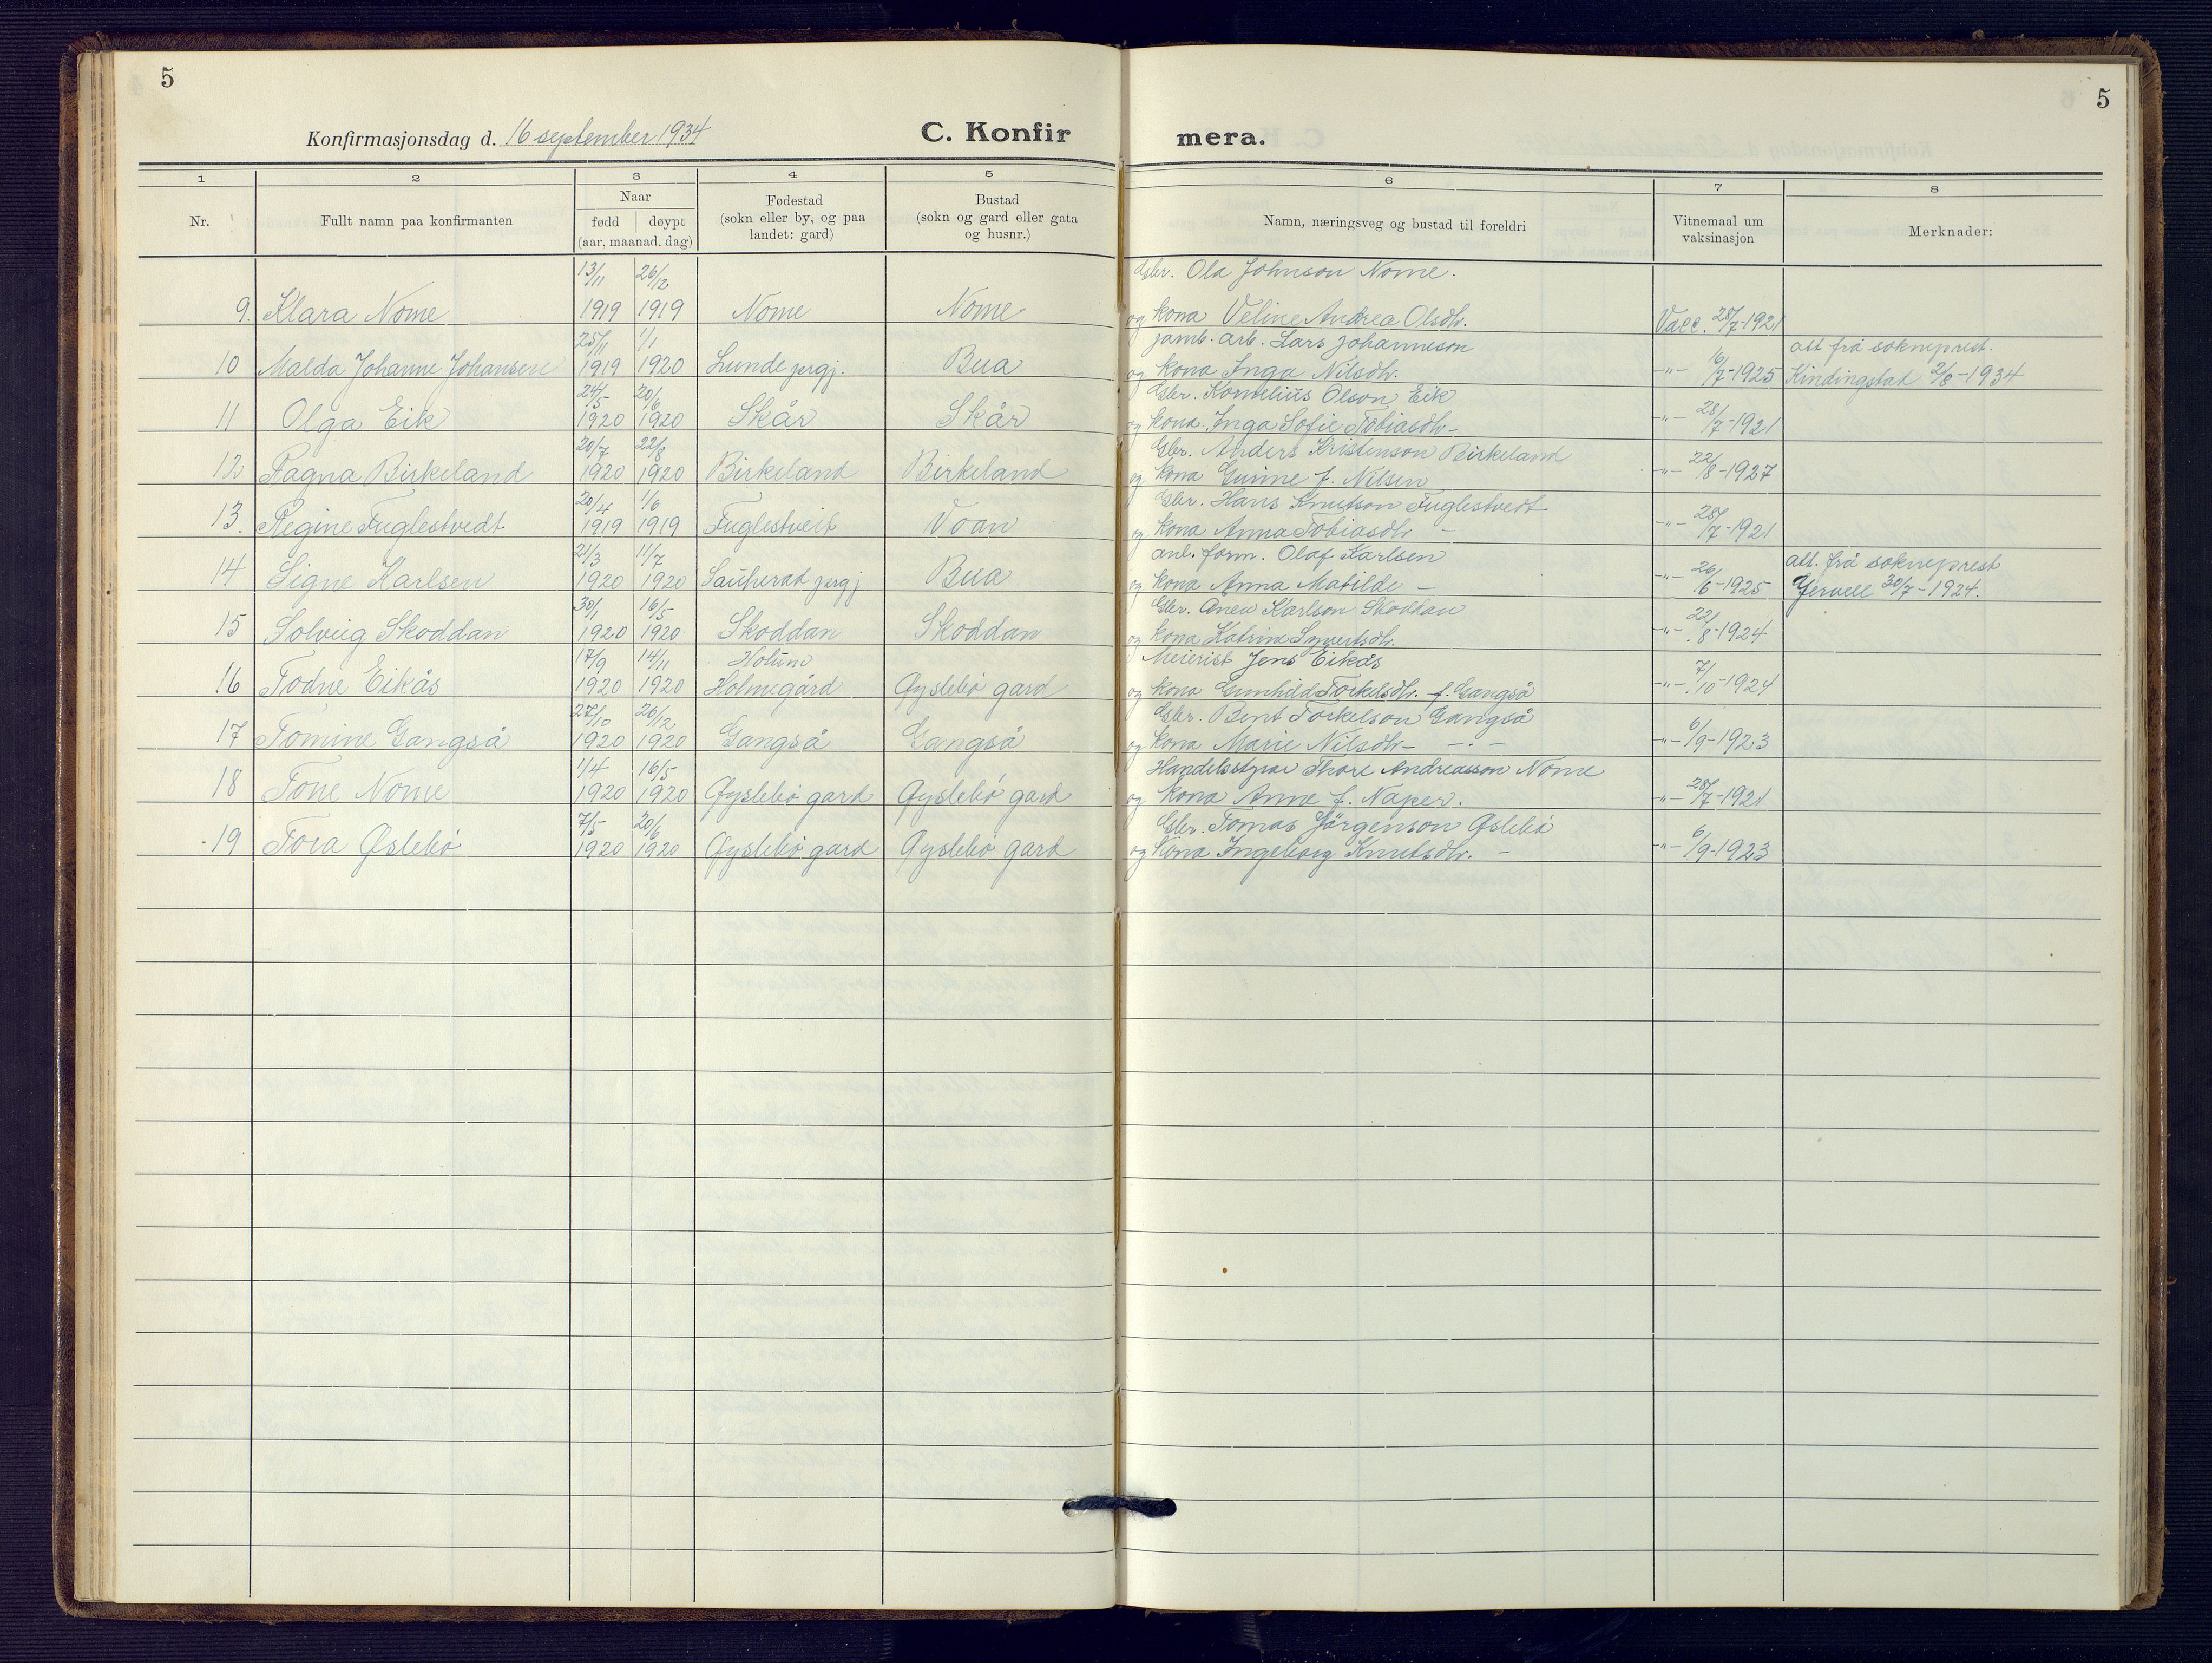 5
5
Konfirmasjonsdag d. 16 september 1934
C. Konfir
mera.
1 2 3 4 5 6 7 8
Nr.
Fullt namn paa konfirmanten
Naar
fødd døypt
(aar, maanad. dag)
Fødestad
(sokn eller by, og paa
landet: gard)
Bustad
(sokn og gard eller gata
og husnr.)
Namn, næringsveg og bustad til foreldri
Vitnemaal um
vaksinasjon
Merknader:
13/11 26/12 Gbr. Ola Johnson Nome.
9. Klara Nome 1919 1919 Nome Nome og kona Veline Andrea Olsdtr. Vacc. 28/7-1921
25/11 1/1 jamb. arb. Lars Johanneson att. frå sokneprest
10 Malda Johanne Johansen 1919 1920 Lunde prgj. Bua og kona Inga Nilsdtr. -"- 16/7-1925 Kindingstad 2/8-1934
24/5 20/6 Gbr. Kornelius Olson Eik
11 Olga Eik 1920 1920 Skår Skår og kona Inga Sofie Tobiasdtr - -"- 28/7-1921
20/7 22/8 Gbr. Anders Kristenson Birkeland
12 Ragna Birkeland 1920 1920 Birkeland Birkeland og kona Gunne f. Nilsen -"- 22/8-1927
20/4 1/6 Gbr. Hans Knutson Fuglestvedt
13. Regine Fuglestvedt 1919 1919 Fuglestveit Voan og kona Anna Tobiasdtr - -"- 28/7-1921
21/3 11/7 anl. form. Olaf Karlsen att. frå sokneprest
14 Signe Karlsen 1920 1920 Sauherad prgj Bua og kona Anna Matilde - -"- 26/6-1925 Gjervell 30/7-1924.
30/1 16/5 Gbr. Anen Karlson Skoddan
15 Solveig Skoddan 1920 1920 Skoddan Skoddan og kona Katrine Syvertsdtr. -"- 22/8-1924
17/9 14/11 Holum Meierist Jens Eikås
16 Todne Eikås 1920 1920 Holmegård Øyslebö gard og kona Gunhild Torkelsdtr. f. Gangså -"- 7/10-1924
27/10 26/12 Gbr. Bent Torkelson Gangså
17 Tomine Gangså 1920 1920 Gangså Gangså og kona Marie Nilsdtr - -"- -"- 6/9-1923
1/4 16/5 Handelsstyrar Thore Andreasson Nome
18 Tone Nome 1920 1920 Øyslebö gard Øyslebö gard og kona Anne f. Naper. -"- 28/7-1921
7/5 20/6 Gbr. Tomas Jörgenson Øslebö
19 Tora Øslebö 1920 1920 Øyslebö gard Øyslebö gard og kona Ingeborg Knutsdtr. - -"- 6/9-1923